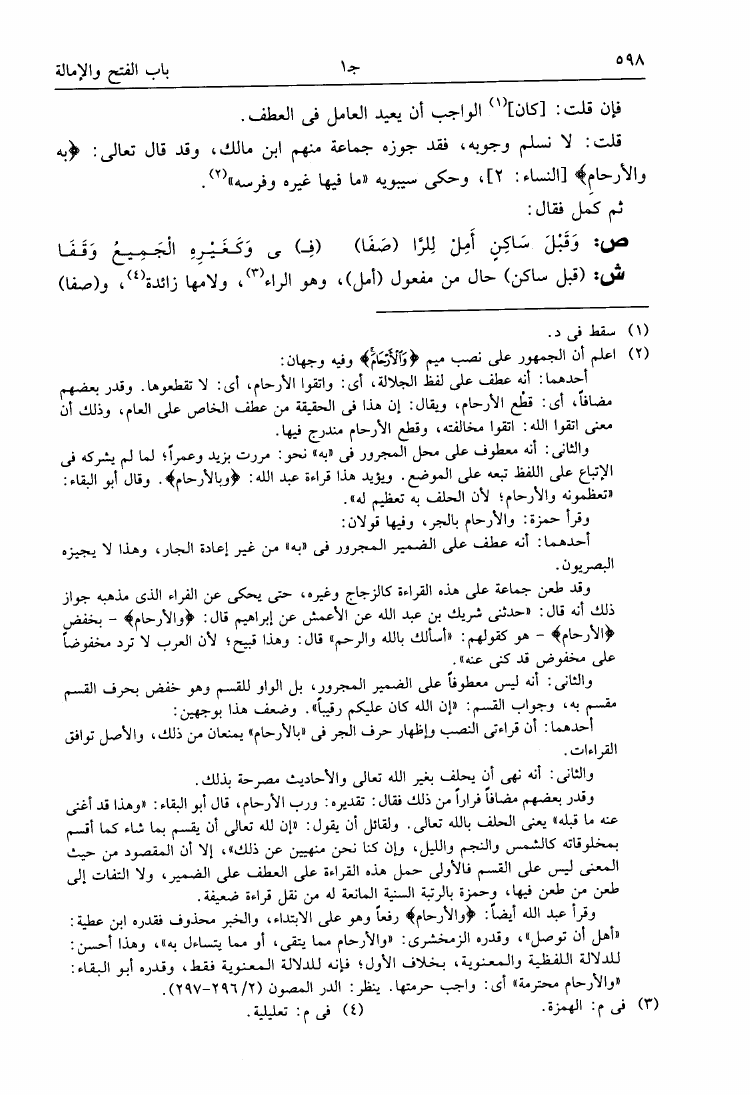 ٥٩٨ جـ١ باب الفتح والإمالة
فإن قلت: [كان](١) الواجب أن يعيد العامل فى العطف.
قلت: لا نسلم وجوبه، فقد جوزه جماعة منهم ابن مالك، وقد قال تعالى: ﴿به
والأرحامِ﴾ [النساء: ٢]، وحكى سيبويه «ما فيها غيره وفرسه»(٢).
ثم كمل فقال:
ص: وَقَبْلَ سَاكِنٍ أَمِلْ لِلرَّا (صَفَا) (فِـ) ى وَكَـغَـيْـرِهِ الْجَـمِـيـعُ وَقَـفَـا
ش: (قبل ساكن) حال من مفعول (أمل)، وهو الراء(٣)، ولامها زائدة(٤)، و(صفا)
(١) سقط فى د.
(٢) اعلم أن الجمهور على نصب ميم ﴿وَٱلْأَرْحَامَۚ﴾ وفيه وجهان:
أحدهما: أنه عطف على لفظ الجلالة، أى: واتقوا الأرحام، أى: لا تقطعوها. وقدر بعضهم
مضافاً، أى: قطْع الأرحام، ويقال: إن هذا فى الحقيقة من عطف الخاص على العام، وذلك أن
معنى اتقوا الله: اتقوا مخالفته، وقطع الأرحام مندرج فيها.
والثانى: أنه معطوف على محل المجرور فى «به» نحو: مررت بزيد وعمراً؛ لما لم يشركه فى
الإتباع على اللفظ تبعه على الموضع. ويؤيد هذا قراءة عبد الله: ﴿وبالأرحام﴾. وقال أبو البقاء:
«تعظمونه والأرحام؛ لأن الحلف به تعظيم له».
وقرأ حمزة: والأرحام بالجر، وفيها قولان:
أحدهما: أنه عطف على الضمير المجرور فى «به» من غير إعادة الجار، وهذا لا يجيزه
البصريون.
وقد طعن جماعة على هذه القراءة كالزجاج وغيره، حتى يحكى عن الفراء الذى مذهبه جواز
ذلك أنه قال: «حدثنى شريك بن عبد الله عن الأعمش عن إبراهيم قال: ﴿والأرحام﴾ - بخفض
﴿الأرحام﴾ - هو كقولهم: «أسألك بالله والرحم» قال: وهذا قبيح؛ لأن العرب لا ترد مخفوضاً
على مخفوض قد كنى عنه».
والثانى: أنه ليس معطوفاً على الضمير المجرور، بل الواو للقسم وهو خفض بحرف القسم
مقسم به، وجواب القسم: «إن الله كان عليكم رقيباً». وضعف هذا بوجهين:
أحدهما: أن قراءتى النصب وإظهار حرف الجر فى «بالأرحام» يمنعان من ذلك، والأصل توافق
القراءات.
والثانى: أنه نهى أن يحلف بغير الله تعالى والأحاديث مصرحة بذلك.
وقدر بعضهم مضافاً فراراً من ذلك فقال: تقديره: ورب الأرحام، قال أبو البقاء: «وهذا قد أغنى
عنه ما قبله» يعنى الحلف بالله تعالى. ولقائل أن يقول: «إن لله تعالى أن يقسم بما شاء كما أقسم
بمخلوقاته كالشمس والنجم والليل، وإن كنا نحن منهيين عن ذلك»، إلا أن المقصود من حيث
المعنى ليس على القسم فالأولى حمل هذه القراءة على العطف على الضمير، ولا التفات إلى
طعن من طعن فيها، وحمزة بالرتبة السنية المانعة له من نقل قراءة ضعيفة.
وقرأ عبد الله أيضاً: ﴿والأرحام﴾ رفعاً وهو على الابتداء، والخبر محذوف فقدره ابن عطية:
«أهل أن توصل»، وقدره الزمخشرى: «والأرحام مما يتقى، أو مما يتساءل به»، وهذا أحسن:
للدلالة اللفظية والمعنوية، بخلاف الأول؛ فإنه للدلالة المعنوية فقط، وقدره أبو البقاء:
«والأرحام محترمة» أى: واجب حرمتها. ينظر: الدر المصون (٢/ ٢٩٦-٢٩٧).
(٣) فى م: الهمزة. (٤) فى م: تعليلية.